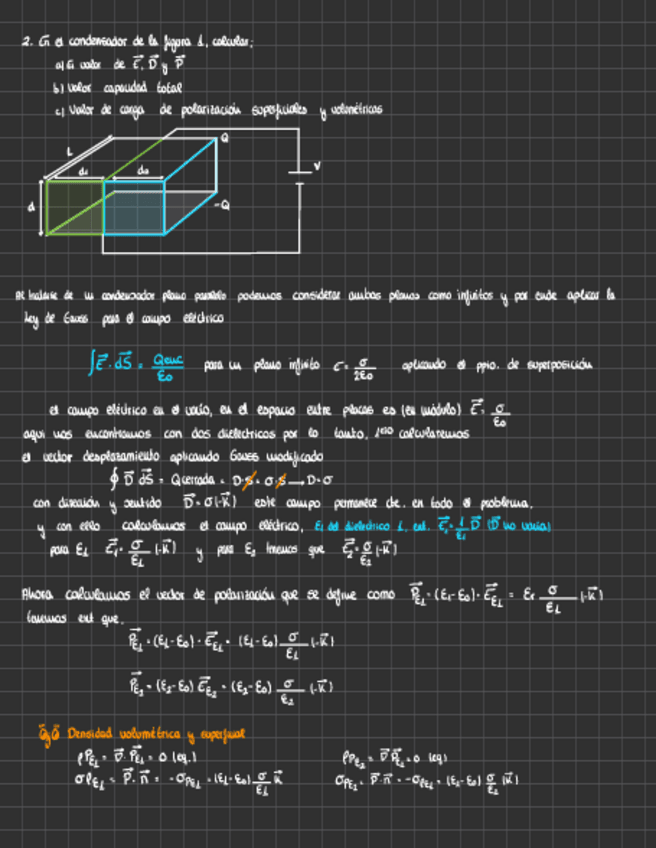 2. En el condensador de la figura 1, calcular:
a) El valor de E⃗, D⃗ y P⃗
b) Valor capacidad total
c) Valor de carga de polarización superficiales y volumétricas
L
d₁ d₂
d
Q
-Q
V
Al tratarse de un condensador plano paralelo podemos considerar ambos planos como infinitos y por ende aplicar la
ley de Gauss para el campo eléctrico
∫E⃗·dS⃗ = Qenc/ε₀ para un plano infinito E = σ/2ε₀ aplicando el ppio. de superposición
el campo eléctrico en el vacío, en el espacio entre placas es (en módulo) E⃗ = σ/ε₀
aqui nos encontramos con dos dielectricos por lo tanto, 1ero calcularemos
el vector desplazamiento aplicando Gauss modificado
∮ D⃗ dS⃗ = Qcerrada = D·S = σ·S → D=σ
con dirección y sentido D⃗ = σ(-k⃗) este campo permanece de. en todo el problema,
y con ello calculamos el campo eléctrico, El del dielectrico 1, ext. E⃗₁ = 1/ε₁ D⃗ (D⃗ no varía)
para ε₁ E⃗₁ = σ/ε₁ (-k⃗) y para ε₂ tenemos que E⃗₂ = σ/ε₂ (-k⃗)
Ahora calculamos el vector de polarización que se define como P⃗ε₁ = (ε₁-ε₀)·E⃗ε₁ = εr σ/ε₁ (-k⃗)
tenemos ext que,
P⃗ε₁ = (ε₁-ε₀)·E⃗ε₁ = (ε₁-ε₀) σ/ε₁ (-k⃗)
P⃗ε₂ = (ε₂-ε₀) E⃗ε₂ = (ε₂-ε₀) σ/ε₂ (-k⃗)
Densidad volumétrica y superficial
ρPε₁ = ∇⃗·P⃗ε₁ = 0 (eq.) ρPε₂ = ∇⃗ P⃗ε₂ = 0 (eq)
σPε₁ = P⃗·n⃗ = -σPε₁ = (ε₁-ε₀) σ/ε₁ k⃗ σPε₂ = P⃗·n⃗ = -σPε₁ = (ε₂-ε₀) σ/ε₂ (k⃗)